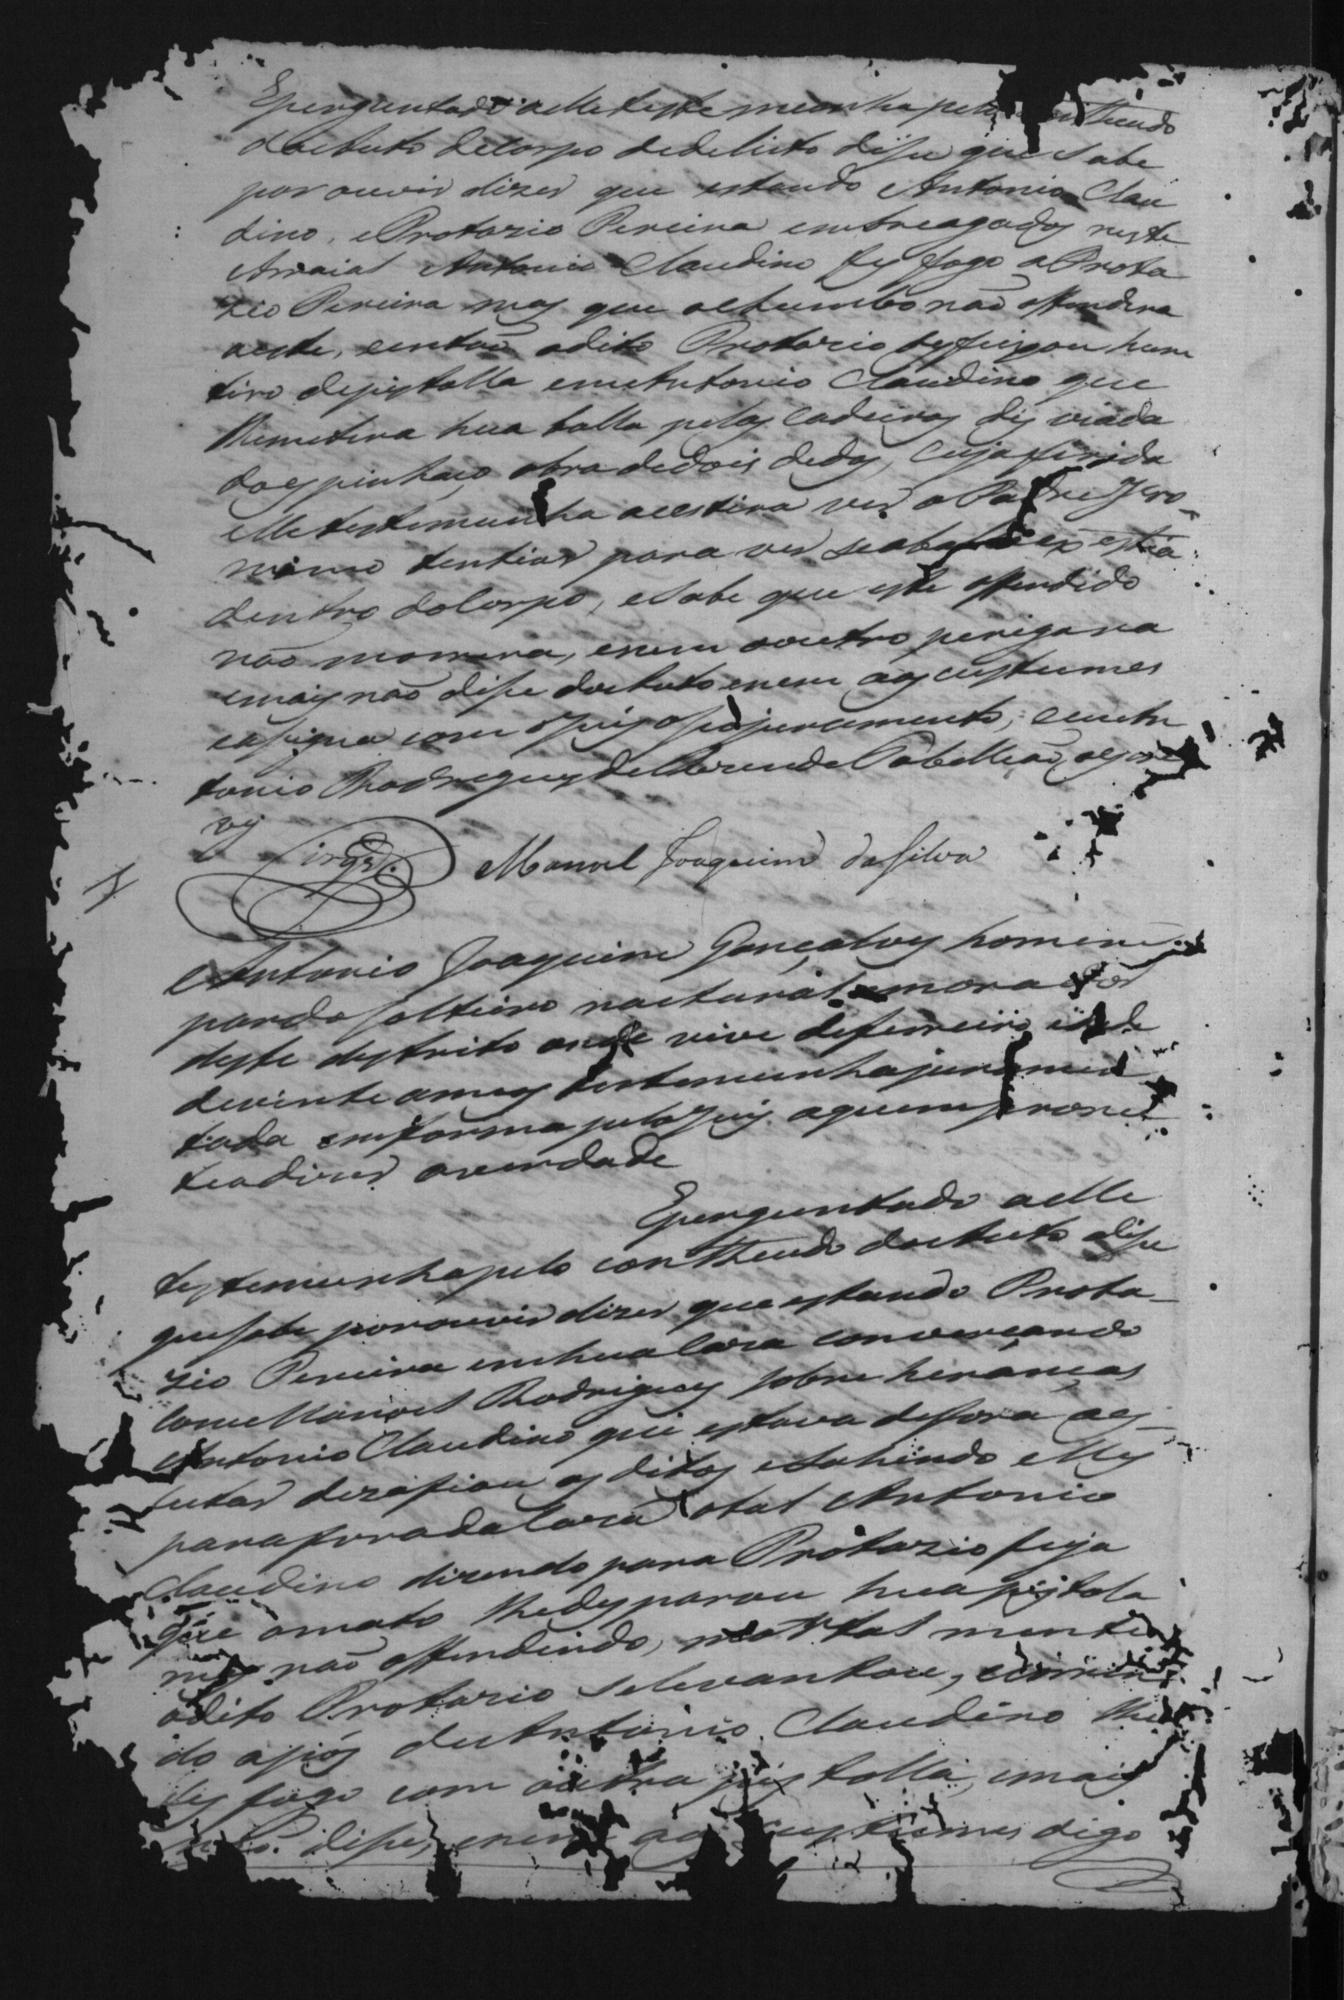 E perguntado a elle testemunha pelo contheudo
do Auto de Corpo de delicto disse que sabe
por ouvir dizer que estando Antonio Clau
dino, e Protazio Pereira embreagados neste
Arraial Antonio Claudino fes fogo a Prota
zio Pereira mas que o chumbo não offendera
a este, e então o dito Protazio desfixou hum
tiro de pistolla em Antonio Claudino que
Remetera hua balla pelas Cadeiras
do espinhaço obra de dois dedos, cuja ferida
elle testemunha a estiva ver o Padre Jero
nimo tentiar para ver se a balla
dentro do Corpo, e Sabe que este offendido
não morrera, e nem o outro perigara
e mais não disse do Auto e nem aos custumes
e assigna com o Juis o seo juramento, e eu An
tonio Rodrigues de Tabelliao o escre
vy
Manoel Joaquim da Silva
Antonio Joaquim Gonçalves homem
pardo solteiro natural e morador
deste destrito onde vive de ferreiro id.e
de vinte annos testemunha juramen
tada em forma pelo Juis a quem prome
teo dizer a verdade
E perguntado a elle
testemunha pelo contheudo do Auto disse
que sabe por ouvir dizer que estando Prota
zio Pereira em hua Caza convercando
Com Manoel Rodrigues sobre heranças
Antonio Claudino que estava de fora a es
cutar dezafiou os ditos e sahindo elles
para fora da Caza o tal Antonio
Claudino dizendo para Protazio fuja
que o mato lhe desparou hua pistola
mas não offendendo, mortalmente
o dito Protazio se levantou, e corren
do após de Antonio Claudino lhe
fes fogo com outra pistolla, e mais
não disse, e nem aos custumes digo